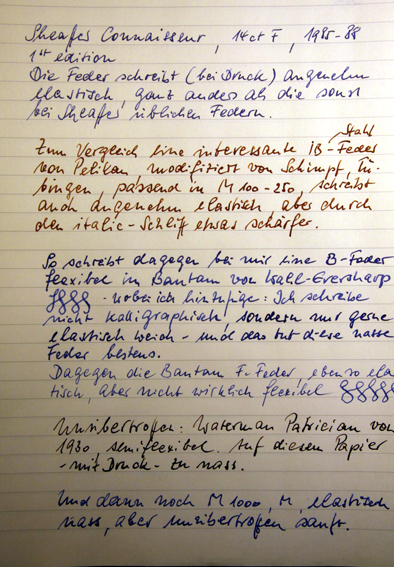 Sheafer Connaisseur, 14ct F, 1985-88
1st edition
Die Feder schreibt (bei Druck) angenehm
elastisch, ganz anders als die sonst
bei Sheafer üblichen Federn.
Stahl
Zum Vergleich eine interessante IB-Feder
von Pelikan, modifiziert von Schimpf, Tü-
bingen, passend in M 100-250, schreibt
auch angenehm elastisch, aber durch
den italic-Schliff etwas schärfer.
So schreibt dagegen bei mir eine B-Feder
flexibel im Bantam von Wahl-Eversharp
§§§§ - wobei ich hinzufüge: Ich schreibe
nicht kalligraphisch, sondern nur gerne
elastisch weich - und das tut diese nasse
Feder bestens.
Dagegen die Bantam F-Feder, ebenso elas
tisch, aber nicht wirklich flexibel §§§§§
Unübertroffen: Waterman Patrician von
1930, semiflexibel. Auf diesem Papier
- mit Druck - zu nass.
Und dann noch M 1000, M, elastisch
nass, aber unübertroffen sanft.